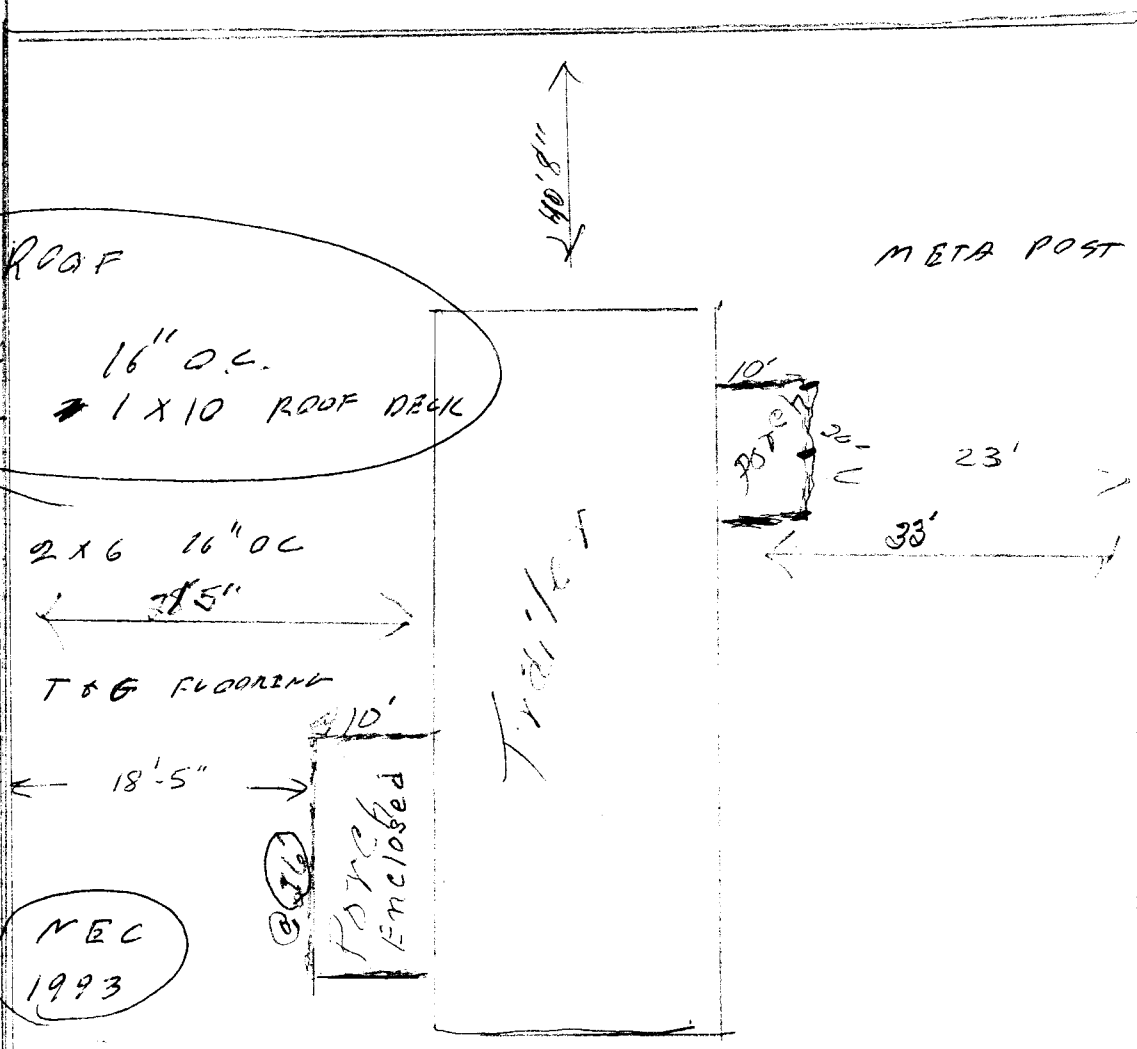 40'8"
ROOF
META POST
16" O.C.
1 X 10 ROOF DECK
10'
Porch
23'
33'
2 X 6 16" OC
T & G FLOORING
Trailer
10'
18'-5"
Porch
Enclosed
NEC
1993